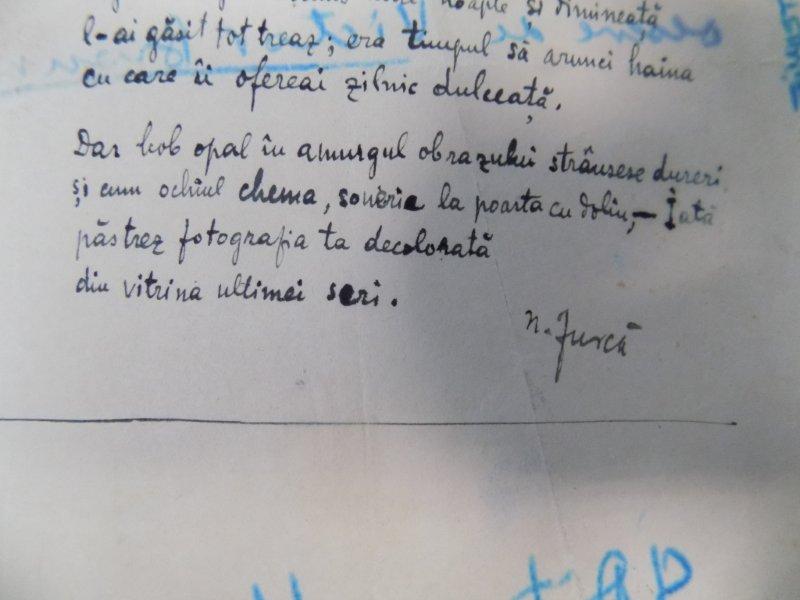 noapte și dimineață
l-ai găsit tot treaz; era timpul să arunci haina
cu care îi ofereai zilnic dulceață.
Dar bob opal în amurgul obrazului strânsese dureri
și cum ochiul chema, sonerie la poarta cu doliu, — Iată
păstrez fotografia ta decolorată
din vitrina ultimei seri.
N. Jurcă